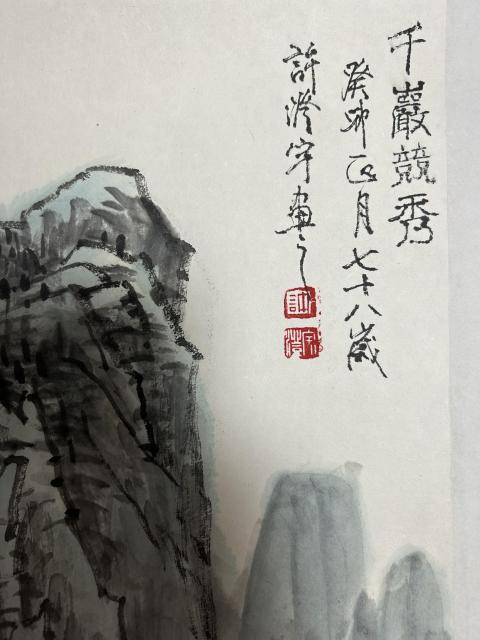 千巖競秀
癸卯正月七十八歲
許澄宇畫之